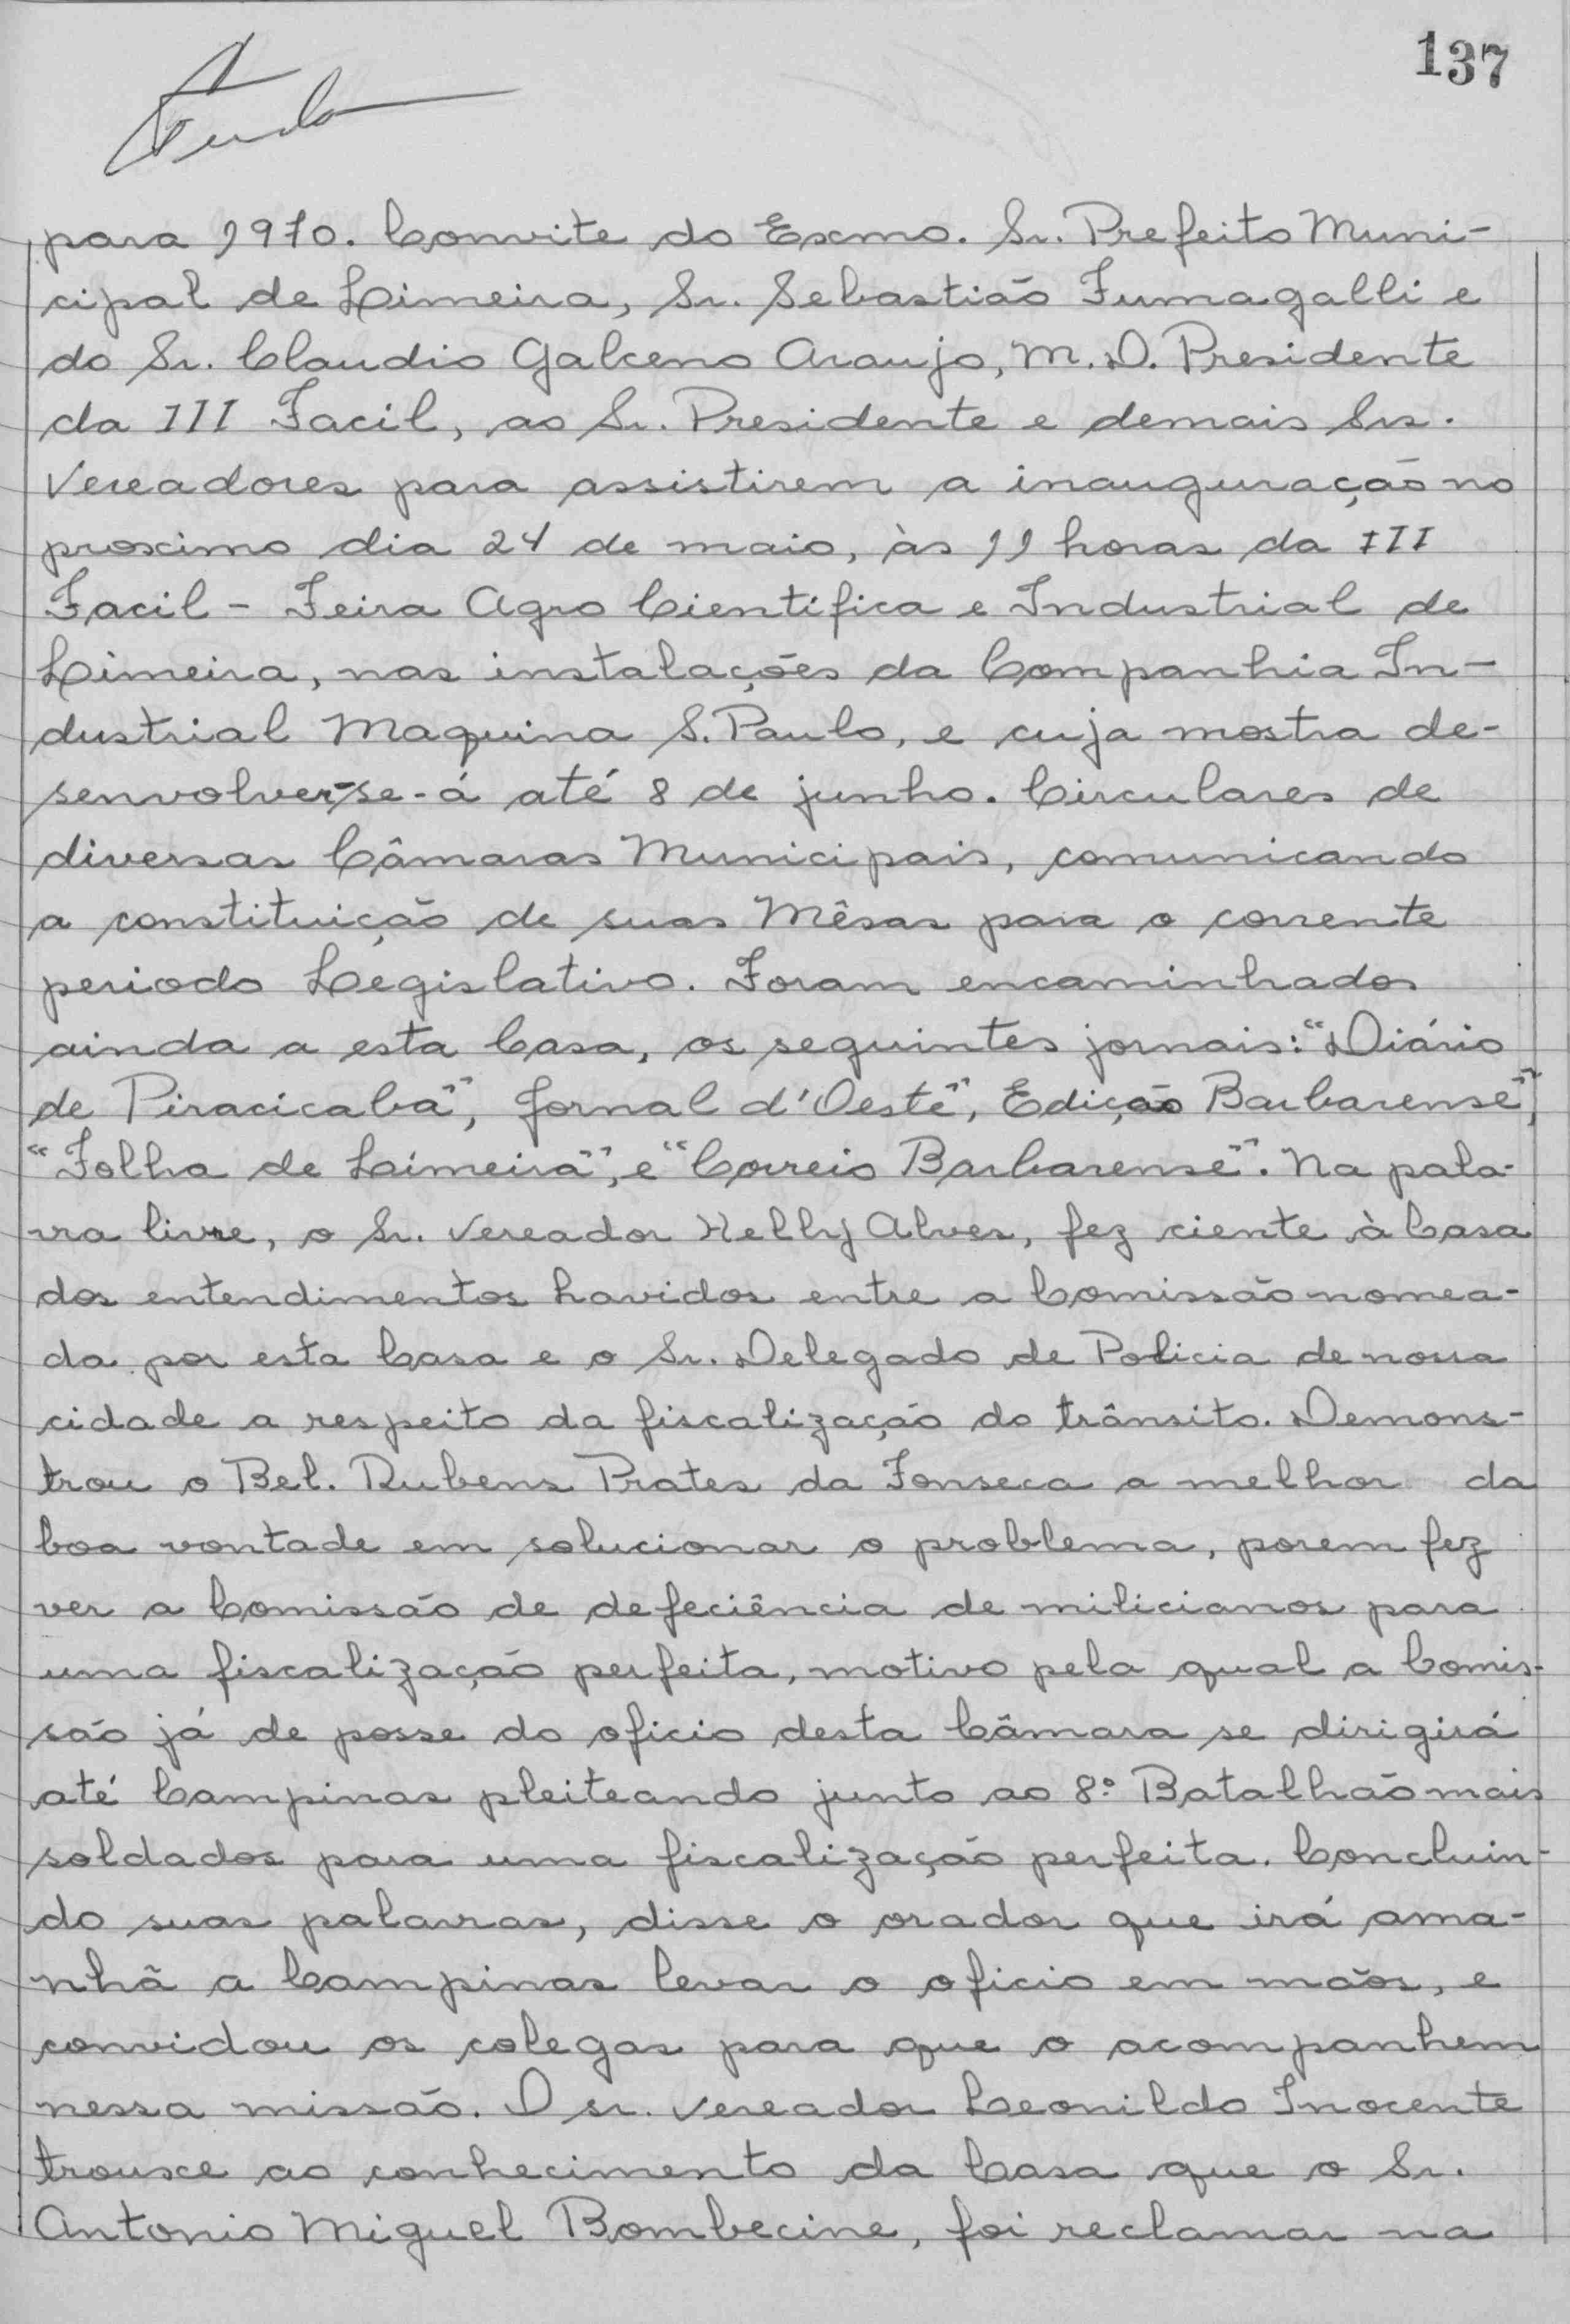 137
para 1970. Convite do Exmo. Sr. Prefeito Muni-
cipal de Limeira, Sr. Sebastião Fumagalli e
do Sr. Claudio Galceno Araujo, M. D. Presidente
da III Facil, ao Sr. Presidente e demais Srs.
Vereadores para assistirem a inauguração no
proximo dia 24 de maio, às 11 horas da III
Facil - Feira Agro Cientifica e Industrial de
Limeira, nas instalações da Companhia In-
dustrial Maquina S. Paulo, e cuja mostra de-
senvolver-se-á até 8 de junho. Circulares de
diversas Câmaras Municipais, comunicando
a constituição de suas Mêsas para o corrente
periodo Legislativo. Foram encaminhados
ainda a esta Casa, os seguintes jornais: "Diário
de Piracicaba", Jornal d'Oeste", Edição Barbarense",
"Folha de Limeira", e "Correio Barbarense". Na pala-
vra livre, o Sr. Vereador Helly Alves, fez ciente à Casa
dos entendimentos havidos entre a Comissão nomea-
da por esta Casa e o Sr. Delegado de Policia de nossa
cidade a respeito da fiscalização do trânsito. Demons-
trou o Bel. Rubens Prates da Fonseca a melhor da
boa vontade em solucionar o problema, porem fez
ver a Comissão de defeciência de milicianos para
uma fiscalização perfeita, motivo pela qual a Comis-
são já de posse do oficio desta Câmara se dirigirá
até Campinas pleiteando junto ao 8º Batalhão mais
soldados para uma fiscalização perfeita. Concluin-
do suas palavras, disse o orador que irá ama-
nhã a Campinas levar o oficio em mãos, e
convidou os colegas para que o acompanhem
nessa missão. O sr. Vereador Leonildo Inocente
trouxe ao conhecimento da Casa que o Sr.
Antonio Miguel Bombecine, foi reclamar na